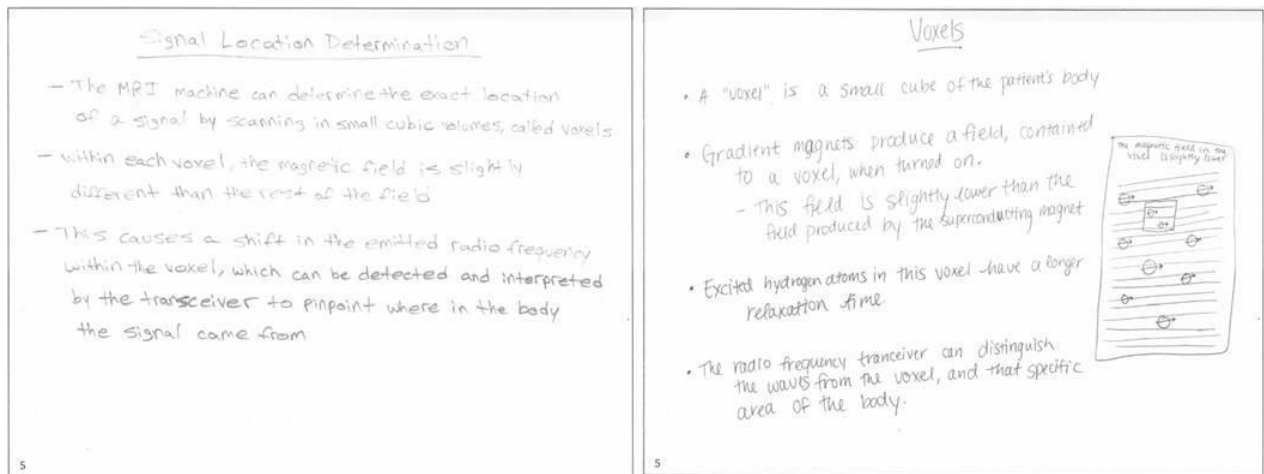 Signal Location Determination
- The MRI machine can determine the exact location
of a signal by scanning in small cubic volumes, called voxels
- within each voxel, the magnetic field is slightly
different than the rest of the field
- This causes a shift in the emitted radio frequency
within the voxel, which can be detected and interpreted
by the transceiver to pinpoint where in the body
the signal came from
5
Voxels
• A "voxel" is a small cube of the patient's body
• Gradient magnets produce a field, contained
to a voxel, when turned on.
- This field is slightly lower than the
field produced by the superconducting magnet
The magnetic field in the
voxel is slightly lower
• Excited hydrogen atoms in this voxel have a longer
relaxation time.
• The radio frequency tranceiver can distinguish
the waves from the voxel, and that specific
area of the body.
5